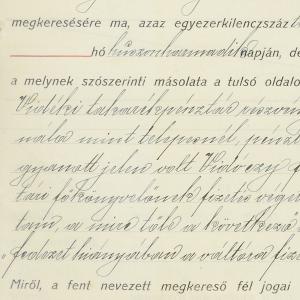 megkeresésére ma, azaz egyezerkilenczszáz
hó huszonharmadik napján, de
a melynek szószerinti másolata a tulsó oldalo
Vidéki takarékpénztár viszom
nála mint telepesnél, pénzt
gyanott jelen volt Vidóczy F
tári főkönyvelőnek fizetés végett
tam, a mire tőle a következő
fedezet hiányában a váltóra fize
Miről, a fent nevezett megkereső fél jogai